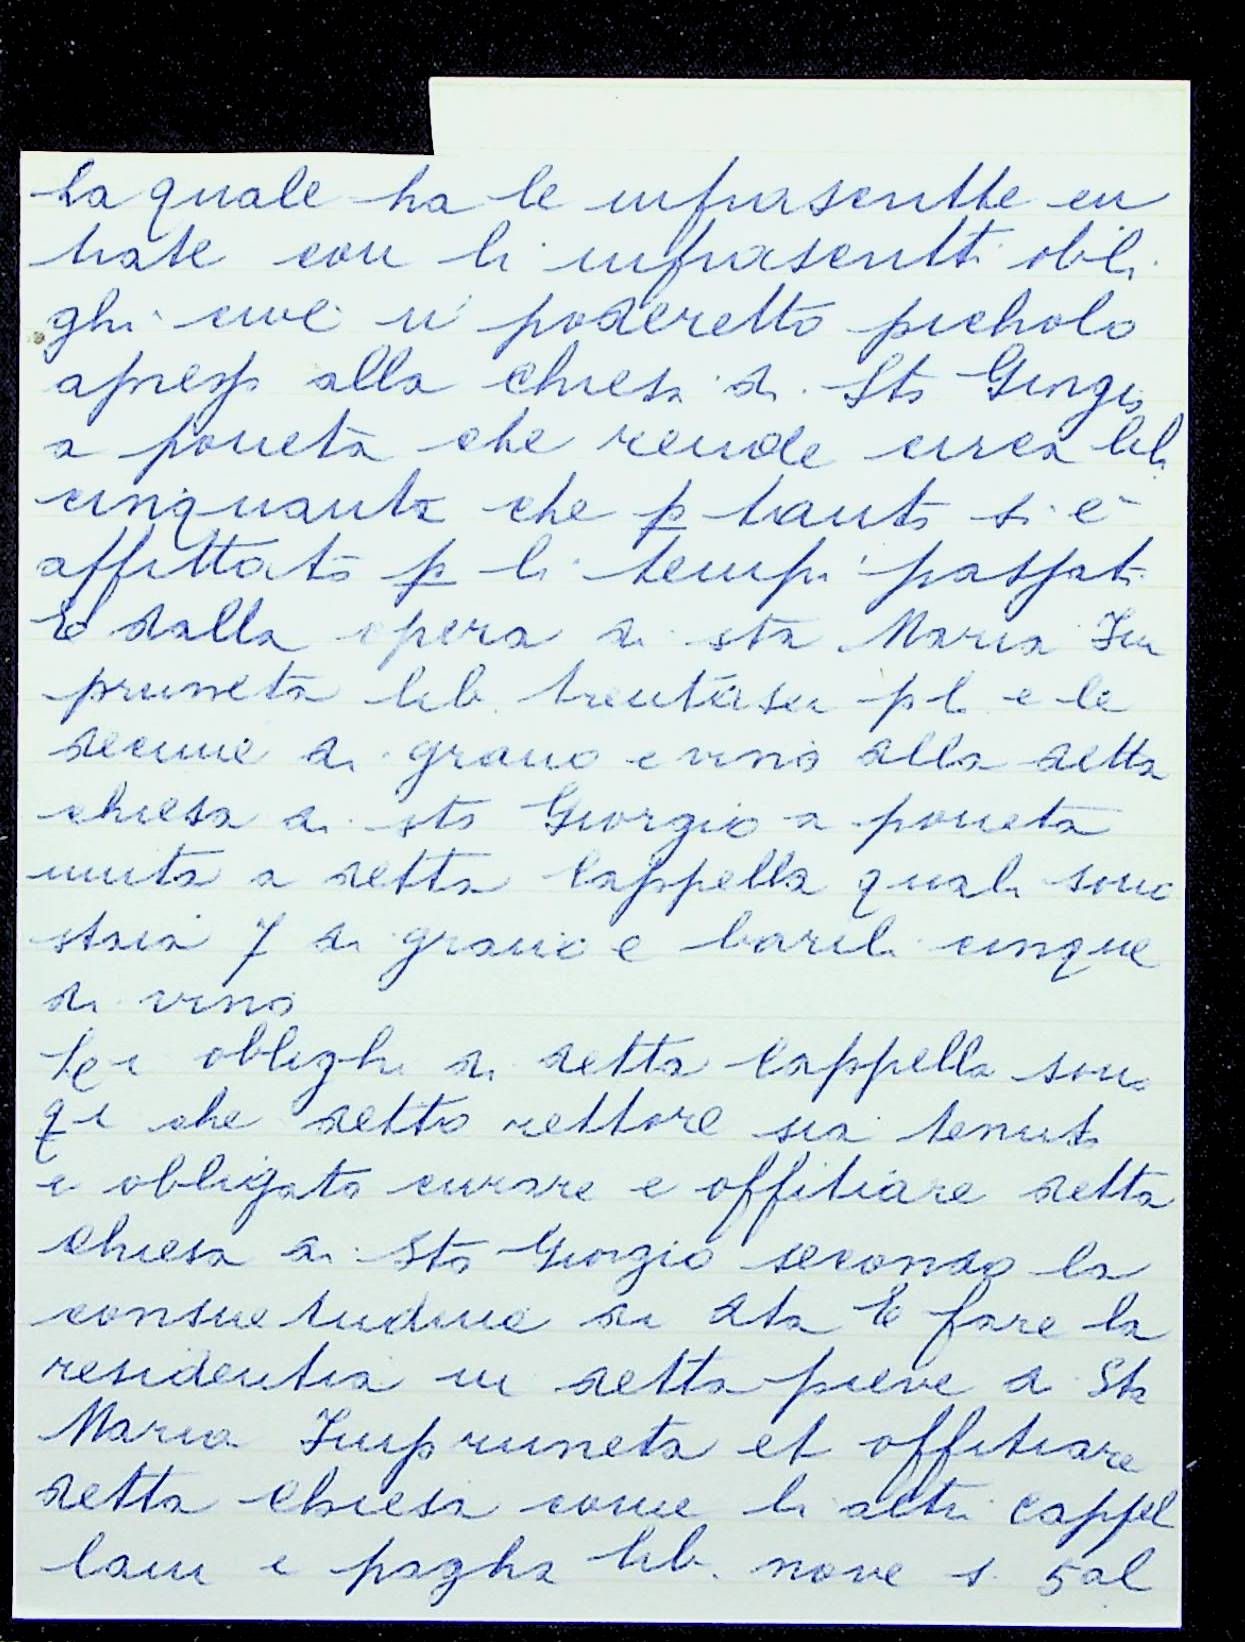 la quale ha le infrascritte en
trate con li infrascritti obli
ghi cioè ii poderetto picholo
apresso alla chiesa di Sto Giorgio
a poneta che rende circa lib.
cinquanta che p tanto si è
affittato p li tempi passati
E dalla opera di sta Maria Im
pruneta lib. trentasei pl. e le
decime di grano e vino alla detta
chiesa di sto Giorgio a poneta
unita a detta Cappella quali sono
staia 7 di grano e barili cinque
di vino
Lei oblighi di detta Cappella sono
qi che detto rettore sia tenuto
e obligato curare e offitiare detta
Chiesa di Sto Giorgio secondo la
consuetudine di dta E fare la
residentia in detta pieve di Sta
Maria Impruneta et offitiare
detta Chiesa come li altri Cappel
lani e pagha lib. nove s. 5 al